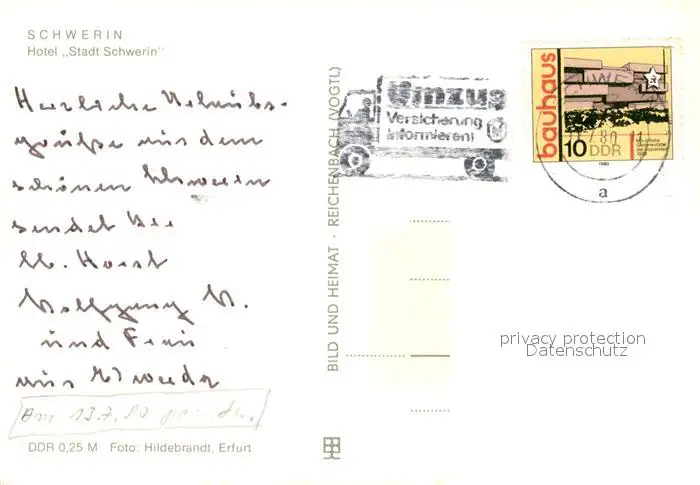 SCHWERIN
Hotel „Stadt Schwerin"
Herzliche Urlaubs-
grüße aus dem
schönen Schwerin
sendet
Horst
Wolfgang
und Frau
Am 13.7.80
DDR 0,25 M Foto: Hildebrandt, Erfurt
BILD UND HEIMAT · REICHENBACH (VOGTL)
Umzug
Versicherung
informieren!
bauhaus
10
DDR
1980
a
privacy protection
Datenschutz